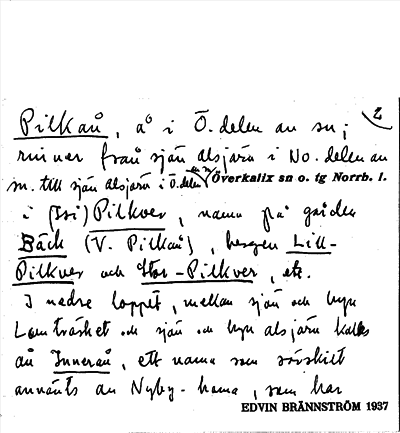 2
Pilkaů, å i Ö. delen av sn;
rinner från sjön alsjärv i No. delen av
sn. till sjön alsjärv i Ö. delen
Överkalix sn o. tg Norrb. l.
i (Isi) Pilkver, namn på gården
Bäck (V. Pilkaů), bergen Lill-
Pilkver och Stor-Pilkver, etc.
I nedre loppet, mellan sjön och byn
Lomträsket o. sjön o. byn alsjärv kallas
ån Inneraů, ett namn som särskilt
använts av Nyby-borna, som har
EDVIN BRÄNNSTRÖM 1937